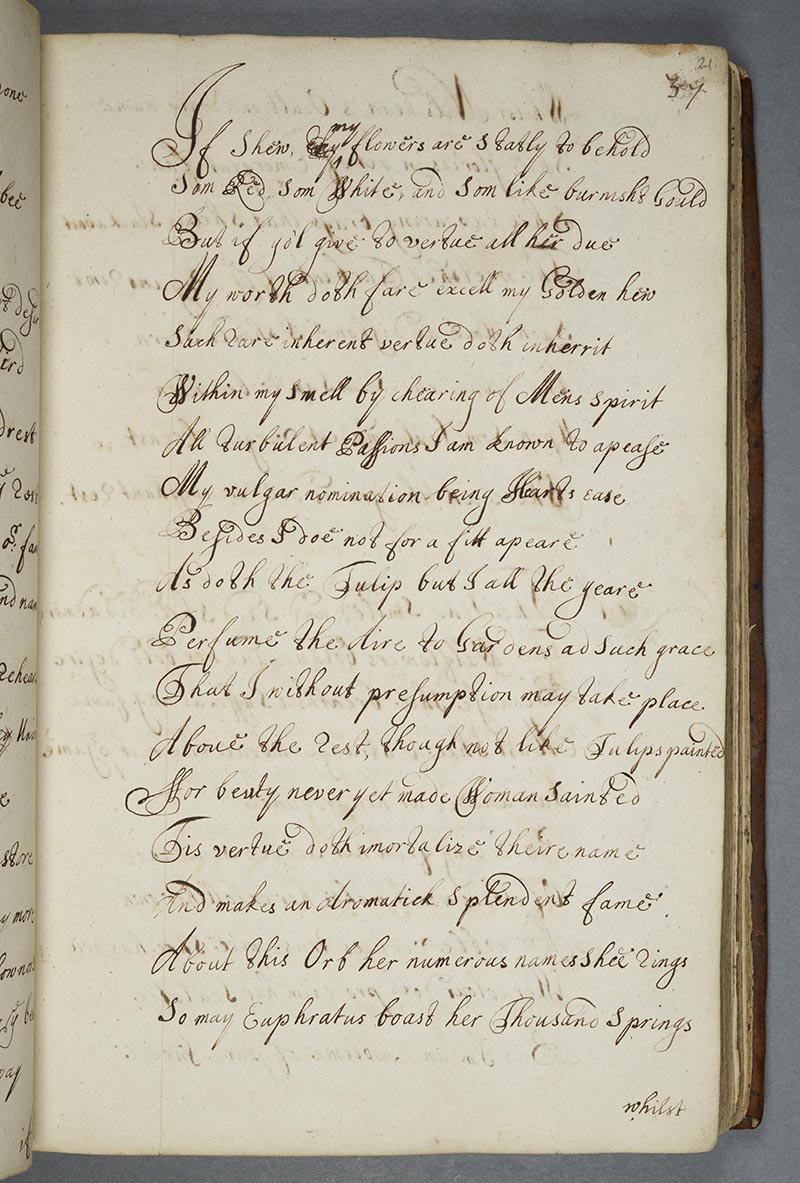 21
37
If Shew, my flowers are Stately to behold
Som Red, Som White, and Som like burnisht Gould
But if yo'l give to vertue all her due
My worth doth fare excell my Golden hew
Such rare inherent vertue doth inherrit
Within my Smell by chearing of Mens Spirit
All turbulent Passions I am known to apease
My vulgar nomination being Hearts ease
Besides I doe not for a fitt apeare
As doth the Tulip but I all the yeare
Perfume the Aire to Gardens ad Such grace
That I without presumption may take place
Above the rest, though not like Tulips painted
ffor beuty never yet made Woman Sainted
Tis vertue doth imortalize theire name
And makes an Aromatick Splendent fame
About this Orb her numerous names Shee rings
So may Euphratus boast her Thousand Springs
whilst